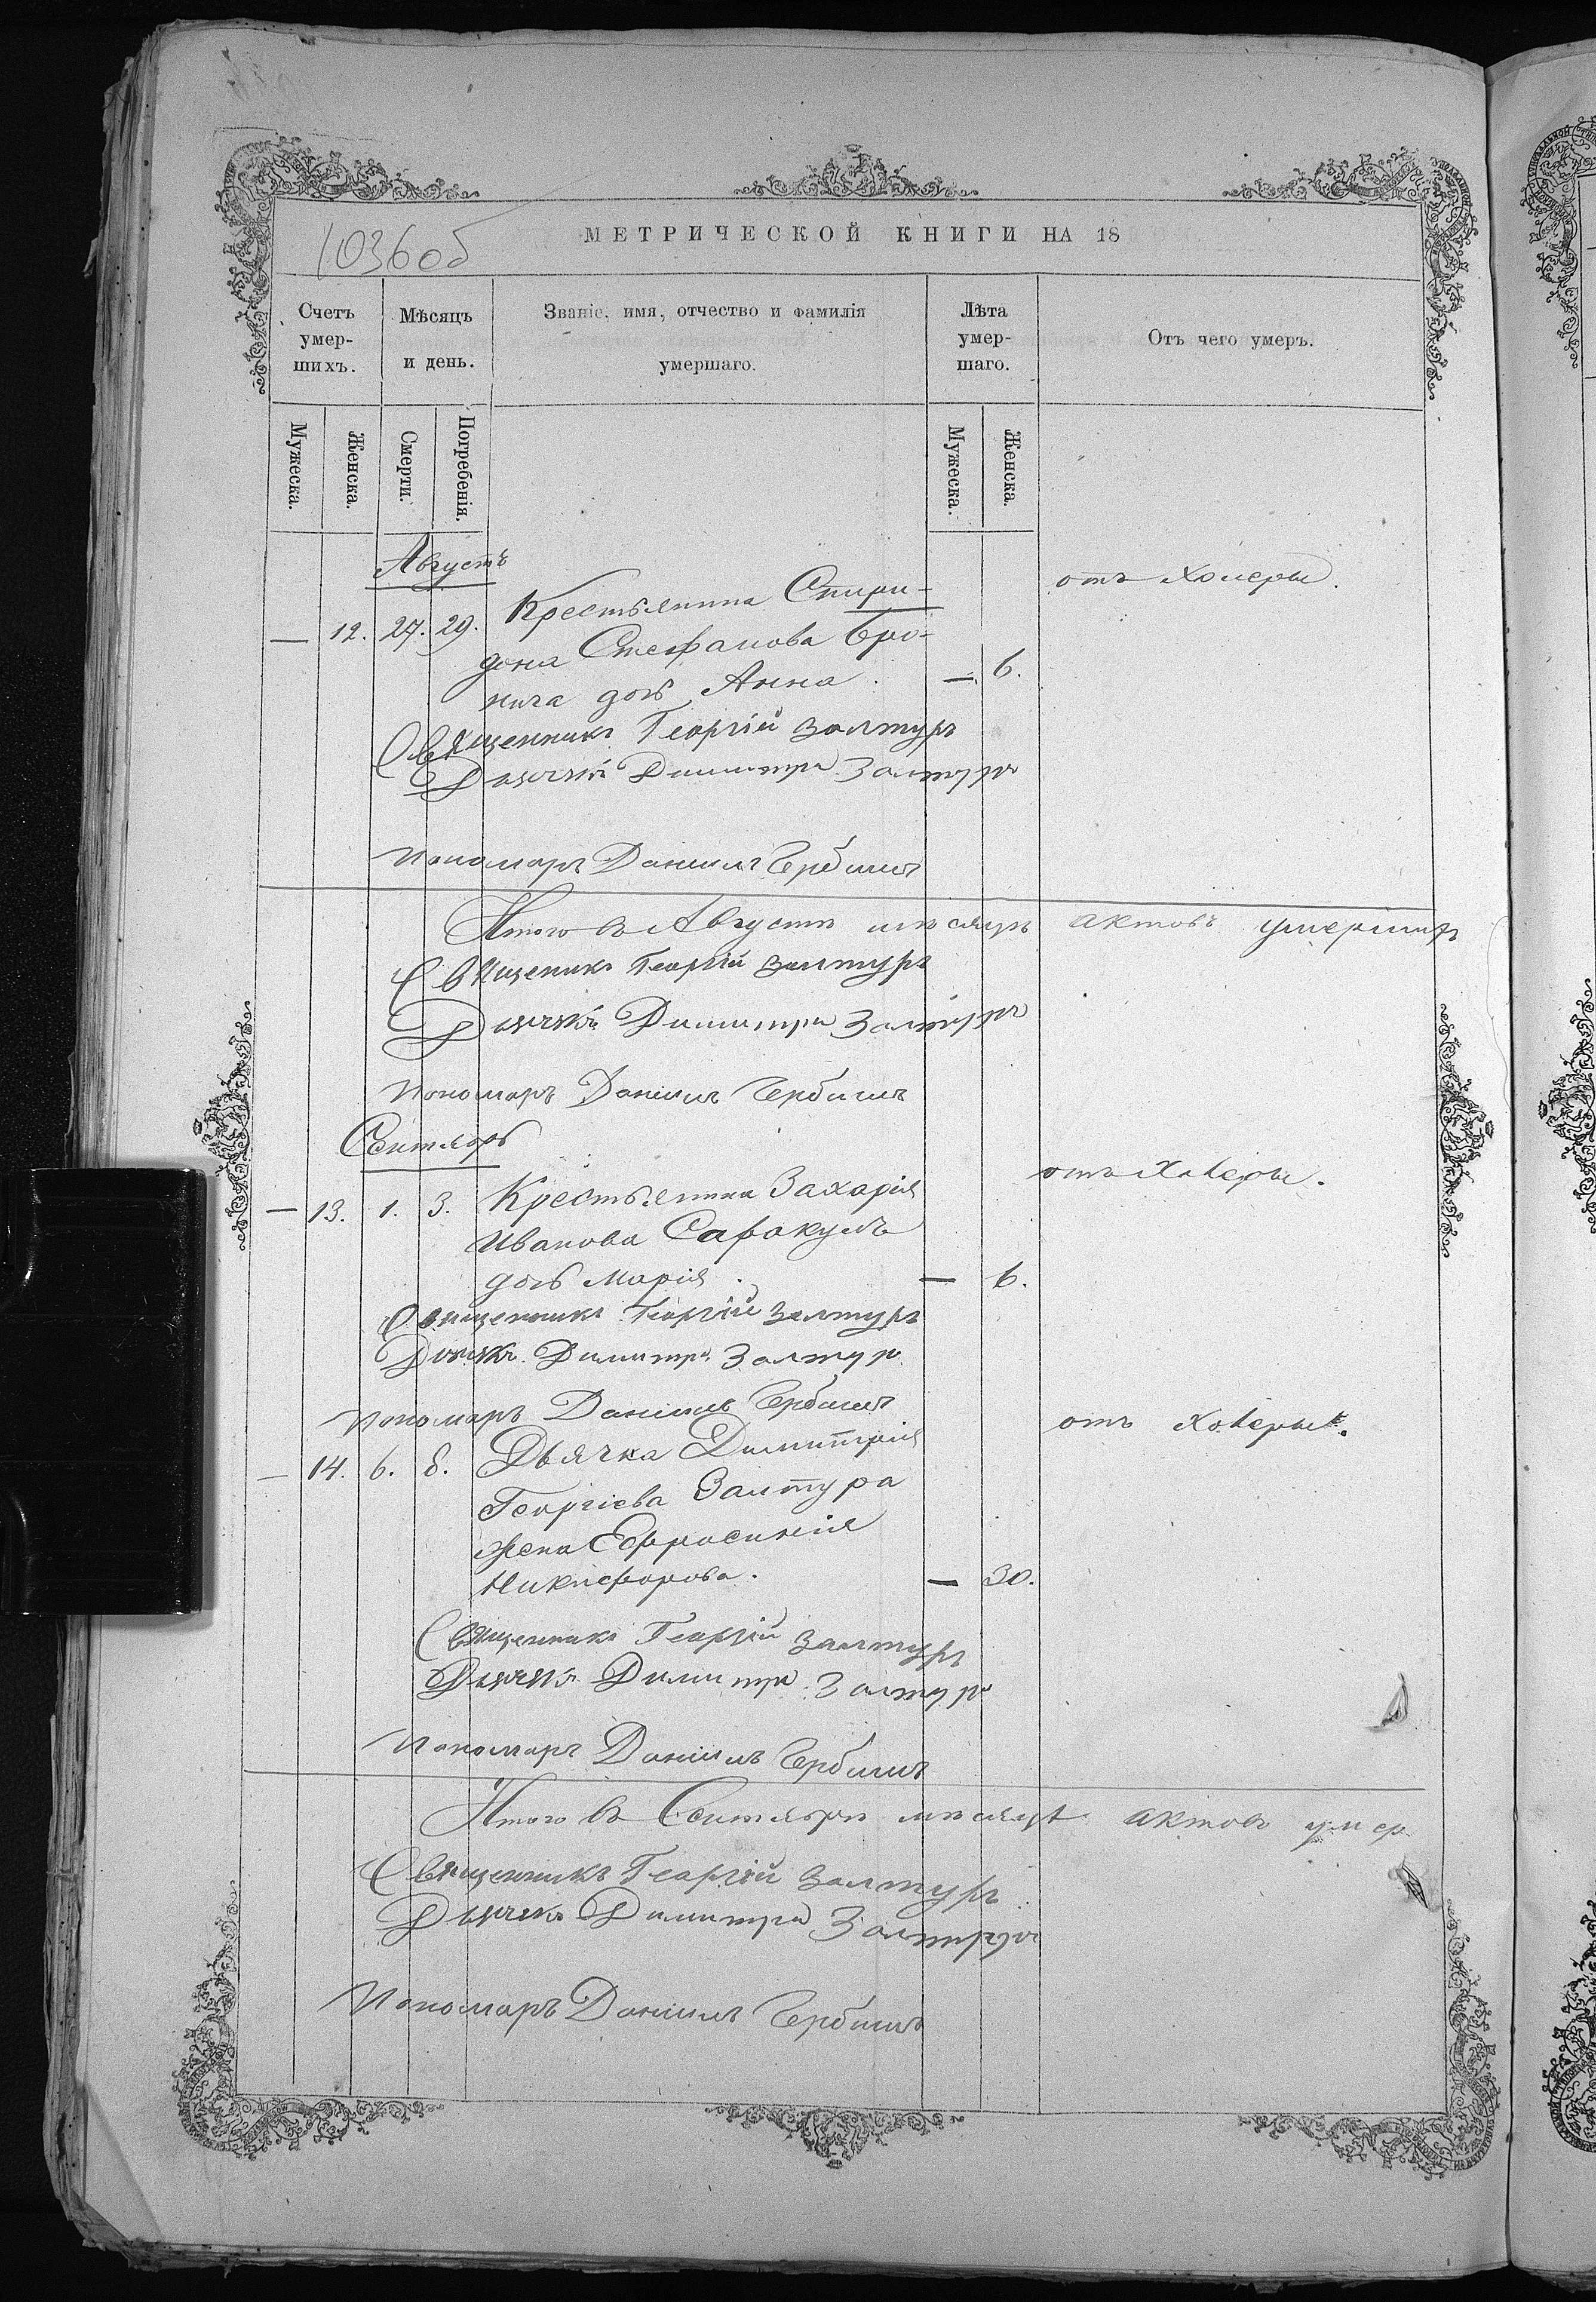 1036об
МЕТРИЧЕСКОЙ КНИГИ НА 18
Счетъ умер-шихъ.
Мѣсяцъ и день.
Званіе, имя, отчество и фамилія умершаго.
Лѣта умер-шаго.
Отъ чего умеръ.
Мужеска.
Женска.
Смерти.
Погребенія.
Мужеска.
Женска.
Августъ
— 12. 27. 29. Крестьянина Спири- отъ холеры.
дона Стефанова Бро-
нича дочь Анна. — 6.
Священникъ Георгій Залтуръ
Дьячекъ Димитри Залтуръ
Пономаръ Даніилъ Чербиилъ
Итого въ Августѣ мѣсяцѣ актовъ умершихъ
Священикъ Георгій Залтуръ
Дьячекъ Димитри Залтуръ
Пономаръ Даніилъ Чербиилъ
Сентябрь
— 13. 1. 3. Крестьянина Захарія отъ холеры.
Иванова Сафакулъ
дочь Марія. — 6.
Священникъ Георгій Залтуръ
Дьячекъ Димитри Залтур
Пономаръ Даніилъ Чербиилъ
— 14. 6. 8. Дьячка Димитрія отъ холеры.
Георгіева Залтура
жена Ефросинія
Никифорова. — 30.
Священникъ Георгій Залтуръ
Дьячекъ Димитри Залтуръ
Пономаръ Даніилъ Чербиилъ
Итого въ Сентябрѣ мѣсяцѣ актовъ умер
Священникъ Георгій Залтуръ
Дьячекъ Димитри Залтуръ
Пономаръ Даніилъ Чербиилъ